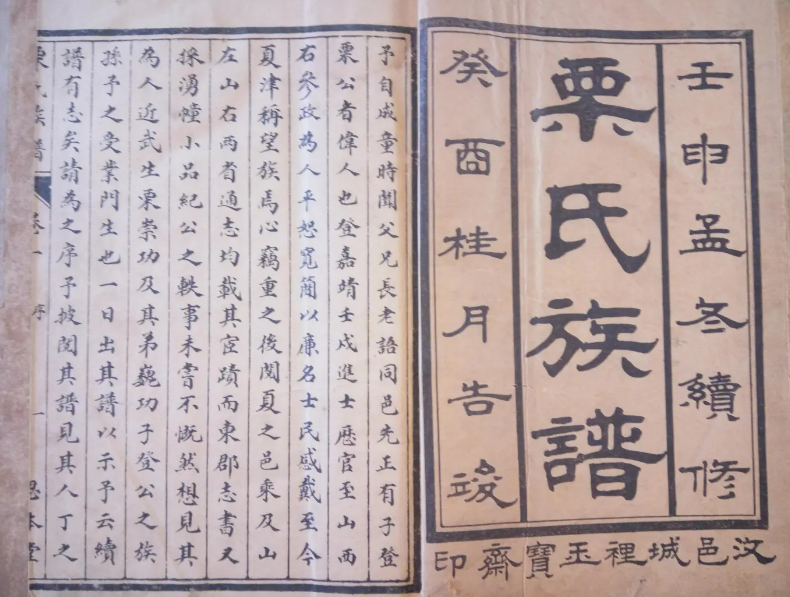 壬申孟冬續修
栗氏族譜
癸酉桂月告竣
汶邑城裡玉寶齋印
予自成童時聞父兄長老語同邑先正有子登
栗公者偉人也登嘉靖壬戌進士歷官至山西
右參政為人平恕寬簡以廉名士民感戴至今
夏津稱望族焉心竊重之後閱夏之邑乘及山
左山右兩省通志均載其宦蹟而東郡志書又
採湧幢小品紀公之軼事未嘗不慨然想見其
為人近武生栗崇功及其弟巍功子登公之族
孫予之受業門生也一日出其譜以示予云續
譜有志矣請為之序予披閱其譜見其人丁之
栗氏族譜 卷一 序 一 思本堂